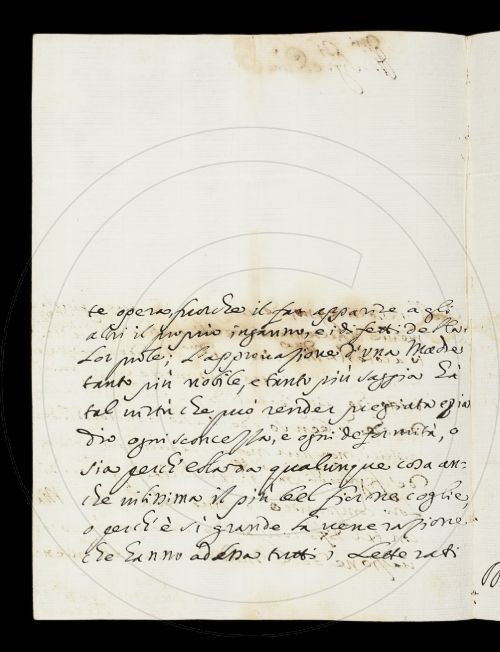 te opera fuorche il far apparire agli
altri il proprio inganno, e i difetti della
Lor prole; L'approvazione d'una Madre
tanto più nobile, e tanto più saggia hà
tal virtù che può render pregiata
ogni sconcezza, e ogni deformità, o
sia perch'essa da qualunque cosa an=
che vilissima il più bel fiorne coglie,
o perch'è sì grande la venerazione,
che hanno ad essa tutti i Letterati